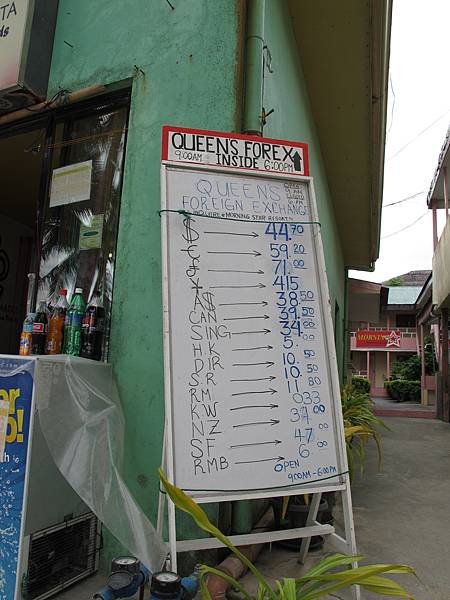 QUEENS FOREX
9:00AM - INSIDE 6:00PM
QUEENS
FOREIGN EXCHANGE
MORNING STAR RESORT
$ 44.70
€ 59.20
£ 71.00
¥ .415
A$ 38.50
CAN 39.50
SING 34.00
H.K 5.50
DIR 10.50
S.R 10.50
RM 11.80
K.W .033
N Z 34.00
S F 47.00
RMB 6.
OPEN
9:00AM - 6:00PM
MORNING